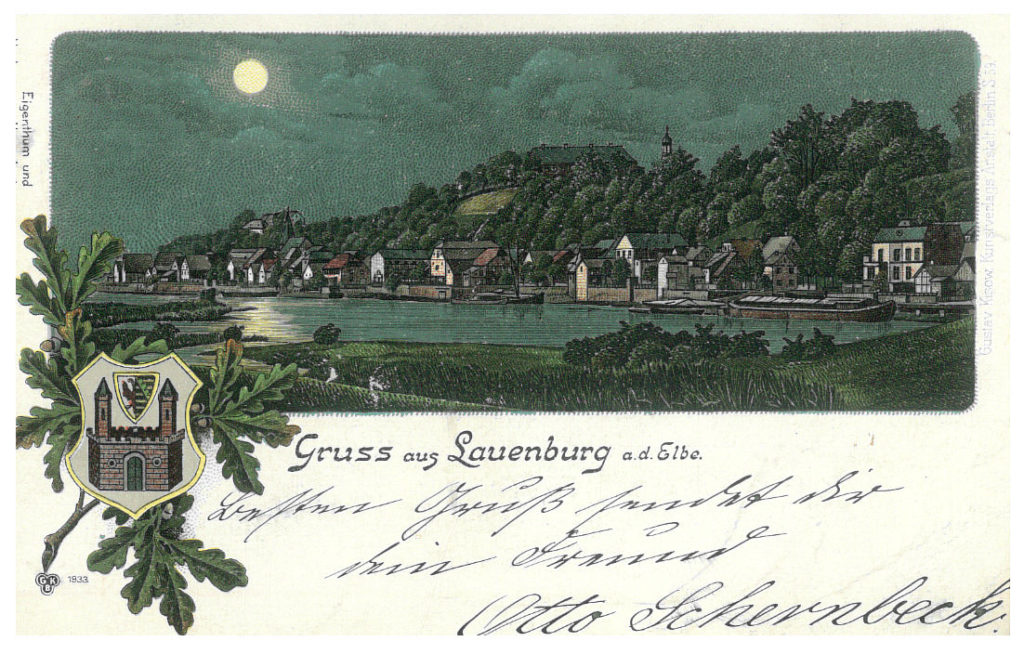 Eigenthum und
Gustav Kisow, Kunstverlags Anstalt Berlin S.59.
Gruss aus Lauenburg a.d. Elbe.
Besten Gruß sendet dir
dein Freund
Otto Schernbeck.
GKB 1933